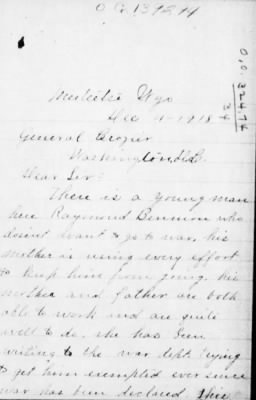 O G 139214
Wyo
Dec 4 - 1918
General Crozier
Washington D.C.
Dear Sir:
There is a young man
here Raymond Bennion who
doesnt want to go to war, his
mother is using every effort
to keep him from going. his
mother and father are both
able to work and are quite
well to do. she has been
writing to the war dept. trying
to get him exempted ever since
war has been declared. this